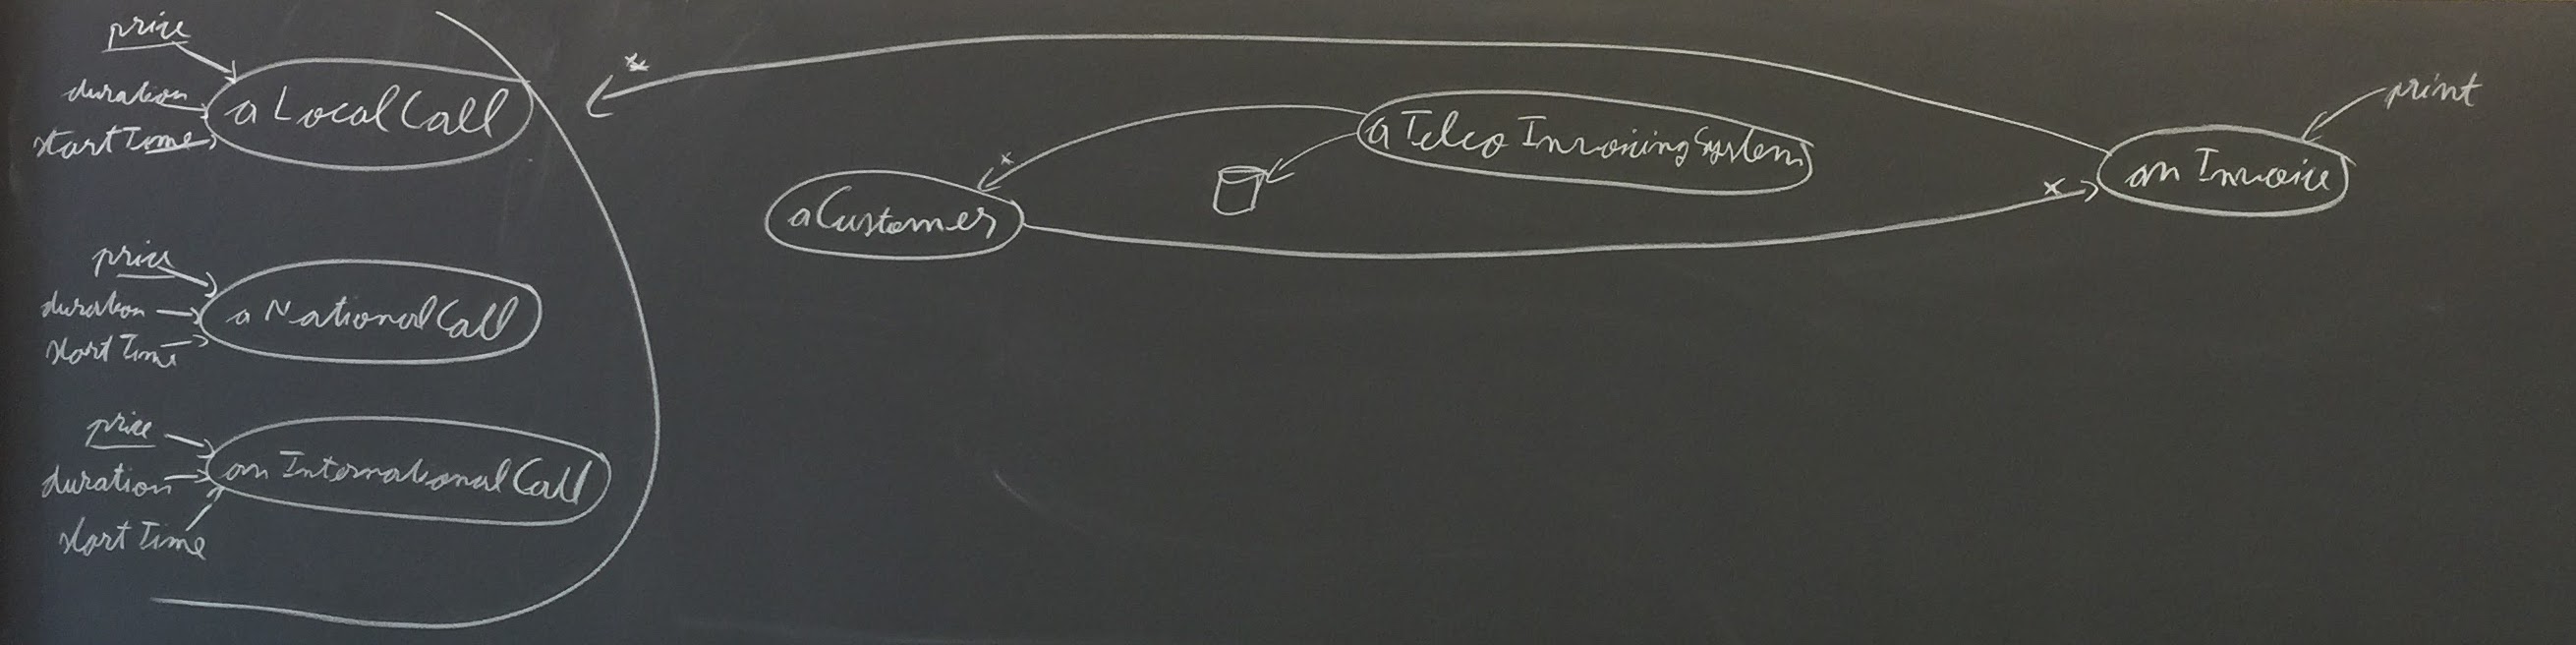 price
duration
startTime
a LocalCall
*
price
duration
startTime
a NationalCall
price
duration
startTime
an InternationalCall
a Customer
*
a Telco Invoicing System
*
an Invoice
print